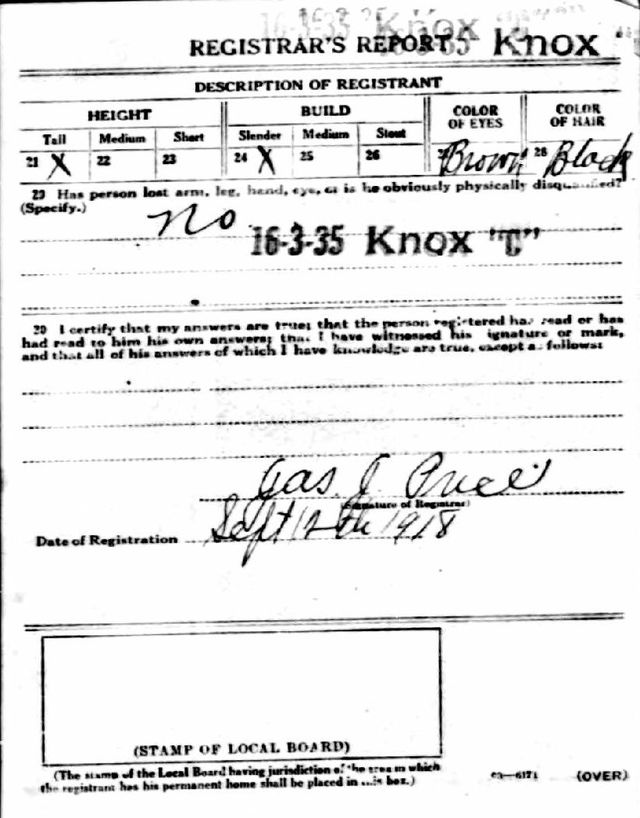 16-3-35 Knox "C"
REGISTRAR'S REPORT
DESCRIPTION OF REGISTRANT
HEIGHT BUILD COLOR OF EYES COLOR OF HAIR
Tall Medium Short Slender Medium Stout
21 X 22 23 24 X 25 26 Brown 28 Black
29 Has person lost arm, leg, hand, eye, or is he obviously physically disqualified?
(Specify.)
no
16-3-35 Knox "C"
30 I certify that my answers are true; that the person registered has read or has
had read to him his own answers; that I have witnessed his signature or mark,
and that all of his answers of which I have knowledge are true, except as follows:
Jas. J.
(Signature of Registrar)
Date of Registration Sept 12th 1918
(STAMP OF LOCAL BOARD)
(The stamp of the Local Board having jurisdiction of the area in which
the registrant has his permanent home shall be placed in this box.)
03—6171 (OVER)